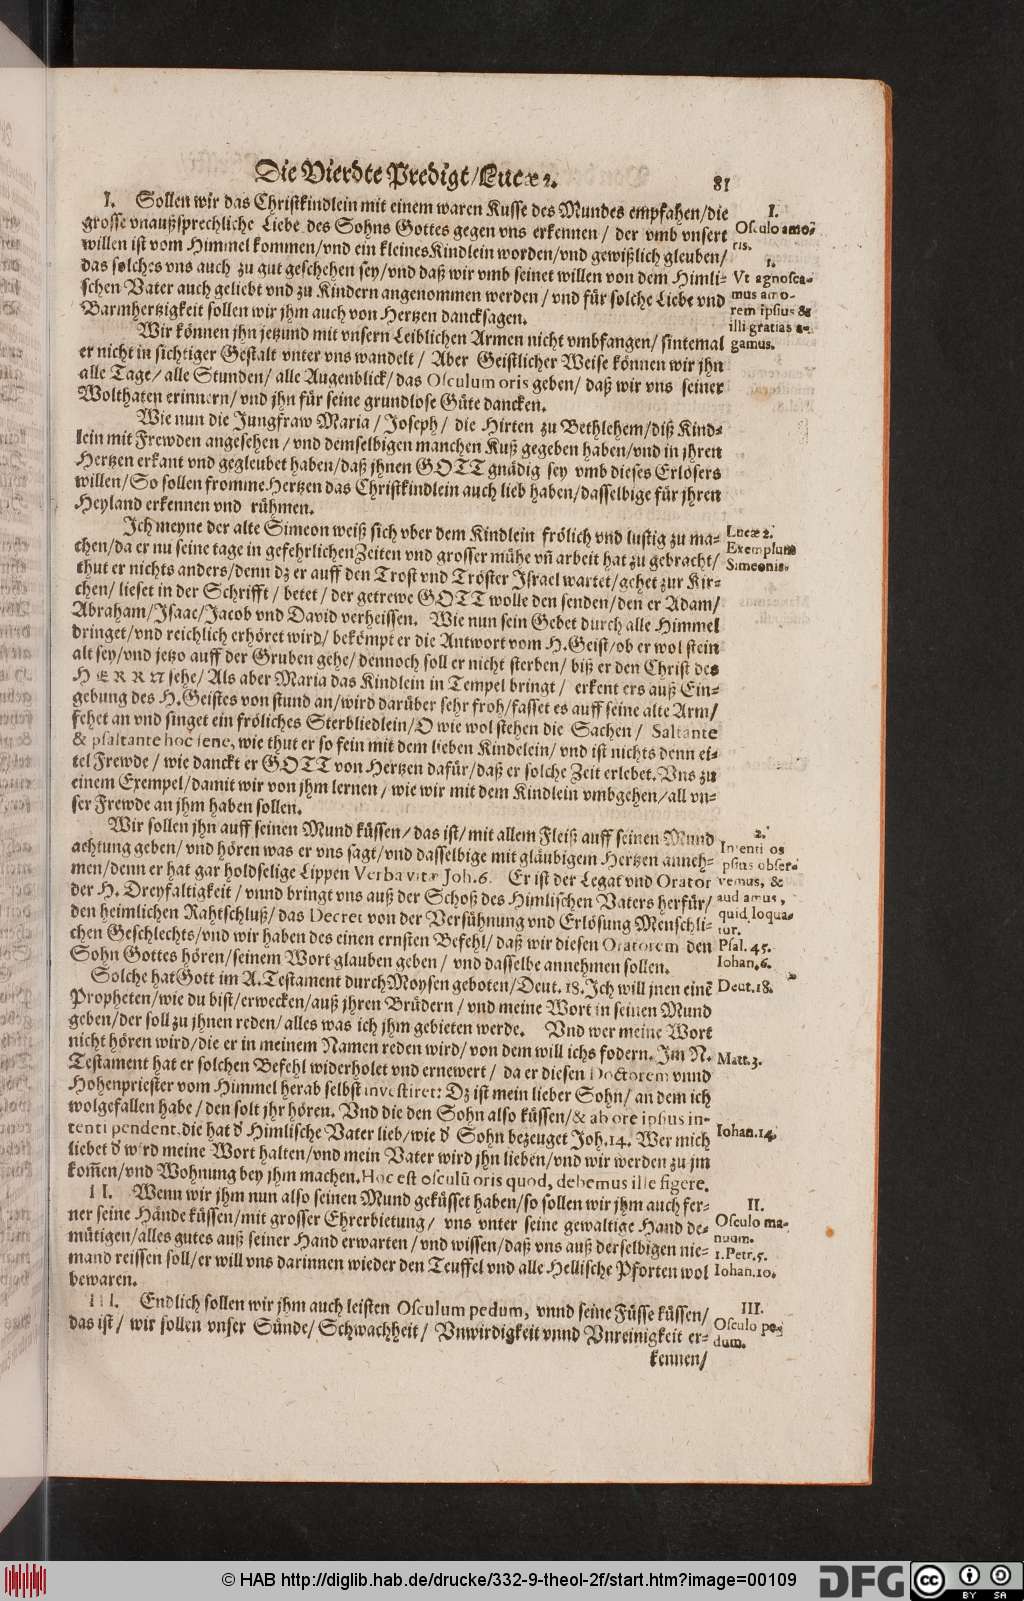 Die Vierdte Predigt/Lucæ 2.
81
I. Sollen wir das Christkindlein mit einem waren Kusse des Mundes empfahen/die
grosse vnaußsprechliche Liebe des Sohns Gottes gegen vns erkennen/ der vmb vnsert
willen ist vom Himmel kommen/vnd ein kleines Kindlein worden/vnd gewißlich gleuben/
das solches vns auch zu gut geschehen sey/vnd daß wir vmb seinet willen von dem Himli-
schen Vater auch geliebt vnd zu Kindern angenommen werden/ vnd für solche Liebe vnd
Barmhertzigkeit sollen wir jhm auch von Hertzen dancksagen.
Wir können jhn jetzund mit vnsern Leiblichen Armen nicht vmbfangen/ sintemal
er nicht in sichtiger Gestalt vnter vns wandelt/ Aber Geistlicher Weise können wir jhn
alle Tage/ alle Stunden/ alle Augenblick/ das Osculum oris geben/ daß wir vns seiner
Wolthaten erinnern/ vnd jhn für seine grundlose Güte dancken.
Wie nun die Jungfraw Maria/ Joseph/ die Hirten zu Bethlehem/ diß Kind-
lein mit Frewden angesehen/ vnd demselbigen manchen Kuß gegeben haben/vnd in jhren
Hertzen erkant vnd gegleubet haben/daß jhnen GOTT gnädig sey vmb dieses Erlösers
willen/So sollen fromme Hertzen das Christkindlein auch lieb haben/dasselbige für jhren
Heyland erkennen vnd rühmen.
Ich meyne der alte Simeon weiß sich vber dem Kindlein frölich vnd lustig zu ma-
chen/da er nu seine tage in gefehrlichen Zeiten vnd grosser mühe vñ arbeit hat zu gebracht/
thut er nichts anders/denn dz er auff den Trost vnd Tröster Israel wartet/gehet zur Kir-
chen/ lieset in der Schrifft/ betet/ der getrewe GOTT wolle den senden/den er Adam/
Abraham/Isaac/Jacob vnd David verheissen. Wie nun sein Gebet durch alle Himmel
dringet/vnd reichlich erhöret wird/ bekömpt er die Antwort vom H.Geist/ob er wol stein
alt sey/vnd jetzo auff der Gruben gehe/ dennoch soll er nicht sterben/ biß er den Christ des
HERRN sehe/ Als aber Maria das Kindlein in Tempel bringt/ erkent ers auß Ein-
gebung des H.Geistes von stund an/wird darüber sehr froh/fasset es auff seine alte Arm/
fehet an vnd singet ein fröliches Sterbliedlein/O wie wol stehen die Sachen/ Saltante
& psaltante hoc sene, wie thut er so fein mit dem lieben Kindelein/ vnd ist nichts denn ei-
tel Frewde/ wie danckt er GOTT von Hertzen dafür/daß er solche Zeit erlebet. Vns zu
einem Exempel/damit wir von jhm lernen/ wie wir mit dem Kindlein vmbgehen/all vn-
ser Frewde an jhm haben sollen.
Wir sollen jhn auff seinen Mund küssen/ das ist/ mit allem Fleiß auff seinen Mund
achtung geben/ vnd hören was er vns sagt/vnd dasselbige mit gläubigem Hertzen anneh-
men/denn er hat gar holdselige Lippen Verba vitæ Joh.6. Er ist der Legat vnd Orator
der H. Dreyfaltigkeit/ vnnd bringt vns auß der Schoß des Himlischen Vaters herfür/
den heimlichen Rahtschluß/ das Decret von der Versühnung vnd Erlösung Menschli-
chen Geschlechts/vnd wir haben des einen ernsten Befehl/ daß wir diesen Oratorem den
Sohn Gottes hören/seinem Wort glauben geben/ vnd dasselbe annehmen sollen.
Solche hat Gott im A.Testament durch Moysen geboten/Deut. 18. Ich will jnen einẽ
Propheten/wie du bist/erwecken/auß jhren Brüdern/ vnd meine Wort in seinen Mund
geben/der soll zu jhnen reden/ alles was ich jhm gebieten werde. Vnd wer meine Wort
nicht hören wird/die er in meinem Namen reden wird/ von dem will ichs fodern. Im N.
Testament hat er solchen Befehl widerholet vnd ernewert/ da er diesen Doctorem vnnd
Hohenpriester vom Himmel herab selbst investiret: Dz ist mein lieber Sohn/ an dem ich
wolgefallen habe/ den solt jhr hören. Vnd die den Sohn also küssen/& ab ore ipsius in-
tenti pendent, die hat d' Himlische Vater lieb/wie d' Sohn bezeuget Joh.14. Wer mich
liebet d' wird meine Wort halten/vnd mein Vater wird jhn lieben/vnd wir werden zu jm
kom̃en/vnd Wohnung bey jhm machen. Hoc est osculũ oris quod, debemus ille figere.
II. Wenn wir jhm nun also seinen Mund geküsset haben/so sollen wir jhm auch fer-
ner seine Hände küssen/mit grosser Ehrerbietung/ vns vnter seine gewaltige Hand de-
mütigen/alles gutes auß seiner Hand erwarten/ vnd wissen/daß vns auß derselbigen nie-
mand reissen soll/er will vns darinnen wieder den Teuffel vnd alle Hellische Pforten wol
bewaren.
III. Endlich sollen wir jhm auch leisten Osculum pedum, vnnd seine Füsse küssen/
das ist/ wir sollen vnser Sünde/ Schwachheit/ Vnwirdigkeit vnnd Vnreinigkeit er-
kennen/
I.
Osculo amo-
ris.
1.
Vt agnosca-
mus amo-
rem ipsius &
illi gratias a-
gamus.
Lucæ 2.
Exemplum
Simeonis.
2.
Intenti os
ipsius obser-
vemus, &
audiamus,
quid loqua-
tur.
Psal. 45.
Iohan. 6.
Deut. 18.
Matt. 3.
Iohan. 14.
II.
Osculo ma-
nuum.
1. Petr. 5.
Iohan. 10.
III.
Osculo pe-
dum.
© HAB http://diglib.hab.de/drucke/332-9-theol-2f/start.htm?image=00109
DFG
cc
BY SA